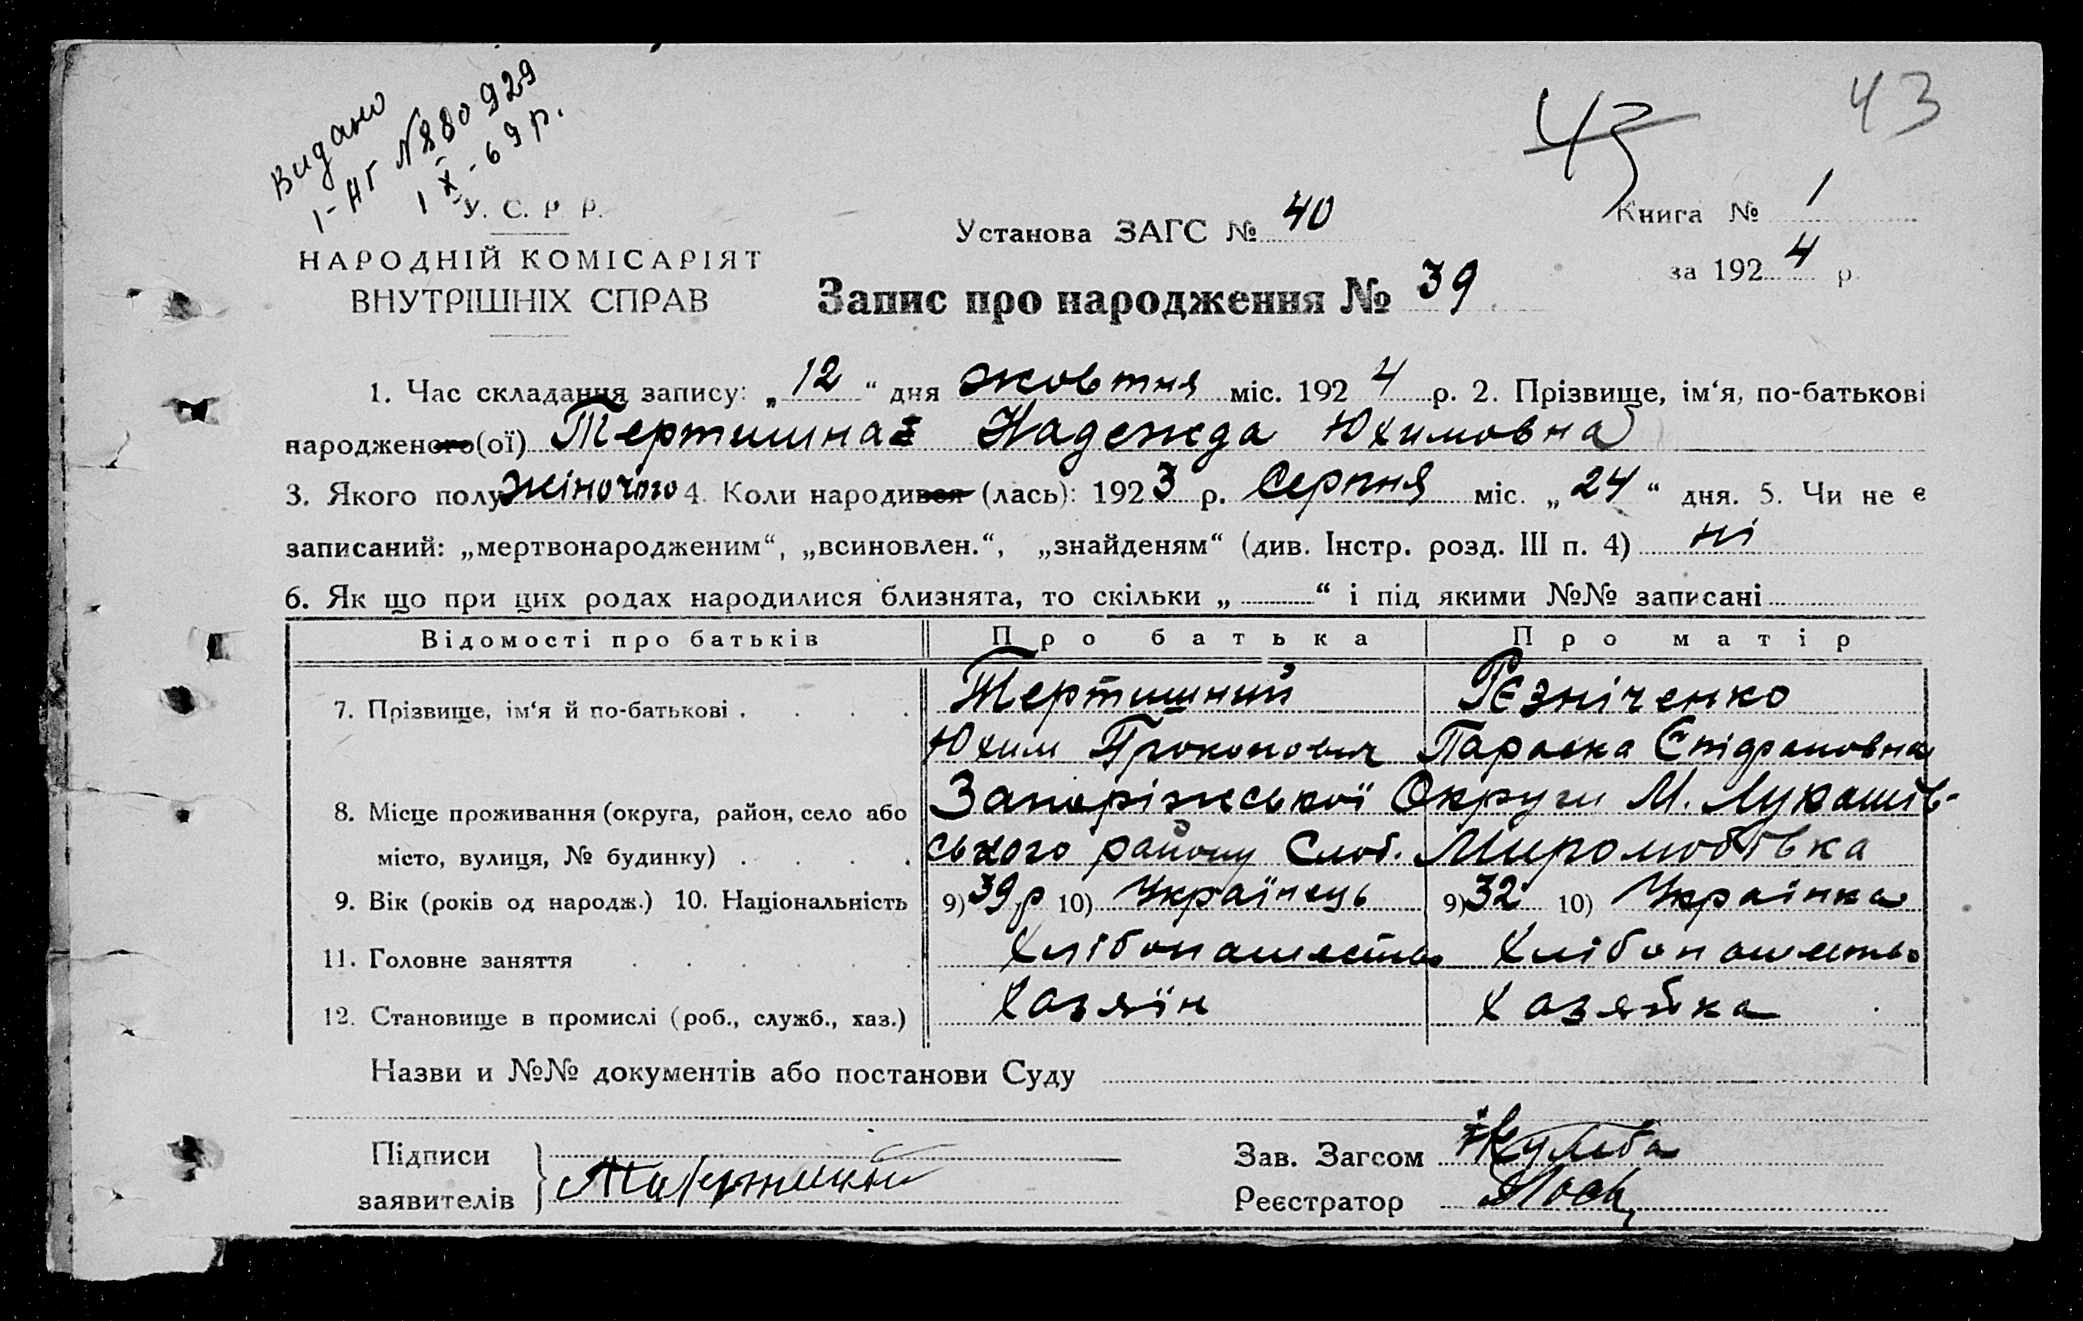 Видано
1-НГ №880929
1 X-69 р.
43
43
У. С. Р. Р.
НАРОДНІЙ КОМІСАРІЯТ
ВНУТРІШНІХ СПРАВ
Установа ЗАГС № 40
Книга № 1
за 1924 р.
Запис про народження № 39
1. Час складання запису: „12“ дня жовтня міс. 1924 р. 2. Прізвище, ім‘я, по-батькові
народженого(ої) Тертишна Надежда Юхимовна
3. Якого полу жіночого 4. Коли народився (лась): 1923 р. Серпня міс. „24“ дня. 5. Чи не є
записаний: „мертвонародженим“, „всиновлен.“, „знайденям“ (див. Інстр. розд. III п. 4) ні
6. Як що при цих родах народилися близнята, то скільки „ “ і під якими №№ записані
Відомості про батьків Про батька Про матір
7. Прізвище, ім‘я й по-батькові . . . . Тертишний Рєзніченко
Юхим Прокопович Параска
8. Місце проживання (округа, район, село або Запоріжської Округи М. Лукашів-
місто, вулиця, № будинку) . . . . ського району Слоб. Миролюбовка
9. Вік (років од народж.) 10. Національність 9) 39 р 10) Українець 9) 32 10) Українка
11. Головне заняття . . . . . Хлібопашество Хлібопашество
12. Становище в промислі (роб., служб., хаз.) Хазяїн Хазяйка
Назви и №№ документів або постанови Суду
Підписи
заявителів
Зав. Загсом
Реєстратор